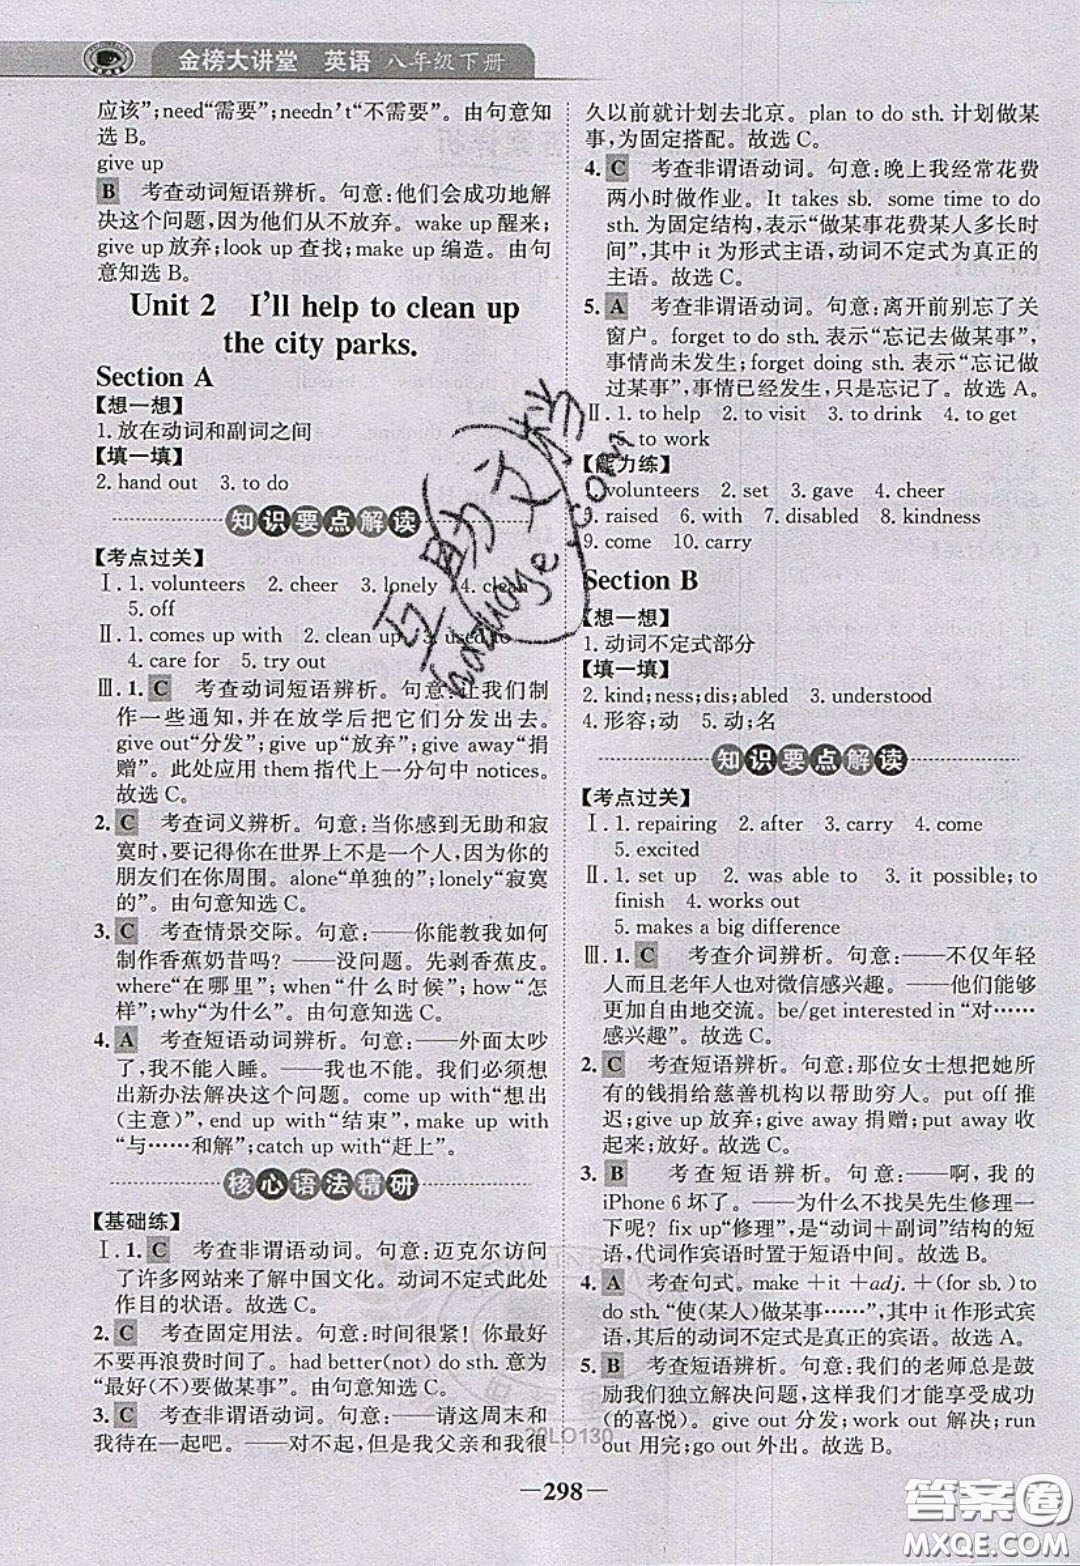 金榜大讲堂 英语 八年级下册
应该”;need“需要”;needn't“不需要”。由句意知
选 B。
give up
B 考查动词短语辨析。句意:他们会成功地解
决这个问题,因为他们从不放弃。wake up 醒来;
give up 放弃;look up 查找;make up 编造。由句
意知选 B。
Unit 2 I'll help to clean up
the city parks.
Section A
【想一想】
1. 放在动词和副词之间
【填一填】
2. hand out 3. to do
知识要点解读
【考点过关】
Ⅰ. 1. volunteers 2. cheer 3. lonely 4. clean
5. off
Ⅱ. 1. comes up with 2. clean up 3. used to
4. care for 5. try out
Ⅲ. 1. C 考查动词短语辨析。句意:让我们制
作一些通知,并在放学后把它们分发出去。
give out“分发”;give up“放弃”;give away“捐
赠”。此处应用 them 指代上一分句中 notices。
故选 C。
2. C 考查词义辨析。句意:当你感到无助和寂
寞时,要记得你在世界上不是一个人,因为你的
朋友们在你周围。alone“单独的”;lonely“寂寞
的”。由句意知选 C。
3. C 考查情景交际。句意:——你能教我如何
制作香蕉奶昔吗?——没问题。先剥香蕉皮。
where“在哪里”;when“什么时候”;how“怎
样”;why“为什么”。由句意知选 C。
4. A 考查短语动词辨析。句意:——外面太吵
了,我不能入睡。——我也不能。我们必须想出
新办法解决这个问题。come up with“想出
(主意)”,end up with“结束”,make up with
“与……和解”;catch up with“赶上”。故选 A。
核心语法精研
【基础练】
Ⅰ. 1. C 考查非谓语动词。句意:迈克尔访问
了许多网站来了解中国文化。动词不定式此处
作目的状语。故选 C。
2. C 考查固定用法。句意:时间很紧!你最好
不要再浪费时间了。had better(not) do sth. 意为
“最好(不)要做某事”。故选 C。
3. C 考查非谓语动词。句意:——请这周末和
我待在一起吧。——对不起,但是我父亲和我很
久以前就计划去北京。plan to do sth. 计划做某
事,为固定搭配。故选 C。
4. C 考查非谓语动词。句意:晚上我经常花费
两小时做作业。It takes sb. some time to do
sth. 为固定结构,表示“做某事花费某人多长时
间”,其中 it 为形式主语,动词不定式为真正的
主语。故选 C。
5. A 考查非谓语动词。句意:离开前别忘了关
窗户。forget to do sth. 表示“忘记去做某事”,
事情尚未发生;forget doing sth. 表示“忘记做
过某事”,事情已经发生,只是忘记了。故选 A。
Ⅱ. 1. to help 2. to visit 3. to drink 4. to get
5. to work
【能力练】
1. volunteers 2. set 3. gave 4. cheer
5. raised 6. with 7. disabled 8. kindness
9. come 10. carry
Section B
【想一想】
1. 动词不定式部分
【填一填】
2. kind;ness;dis;abled 3. understood
4. 形容;动 5. 动;名
知识要点解读
【考点过关】
Ⅰ. 1. repairing 2. after 3. carry 4. come
5. excited
Ⅱ. 1. set up 2. was able to 3. it possible;to
finish 4. works out
5. makes a big difference
Ⅲ. 1. C 考查介词辨析。句意:——不仅年轻
人而且老年人也对微信感兴趣。——是的,我们
能更加自由地交流。be/get interested in“对……
感兴趣”。故选 C。
2. C 考查短语辨析。句意:那位女士想把她所
有的钱捐给慈善机构以帮助穷人。put off 推
迟;give up 放弃;give away 捐赠;put away 收
起来;放好。故选 C。
3. B 考查短语辨析。句意:——啊,我的
iPhone 6 坏了。——为什么不找吴先生修理一
下呢? fix up“修理”,是“动词+副词”结构的短
语,代词作宾语时要置于短语中间。故选 B。
4. A 考查句式。make +it+adj. +(for sb.) to
do sth. “使(某人)做某事……”,其中 it 作形式宾
语,其后的动词不定式是真正的宾语。故选 A。
5. B 考查短语辨析。句意:我们的老师总是鼓
励我们独立解决问题,这样我们才能享受成功
(的喜悦)。give out 分发;work out 解决;run
out 用完;go out 出去。故选 B。
20LO130
—298—
互助文档
haduoye.com
答案圈
MXQE.COM